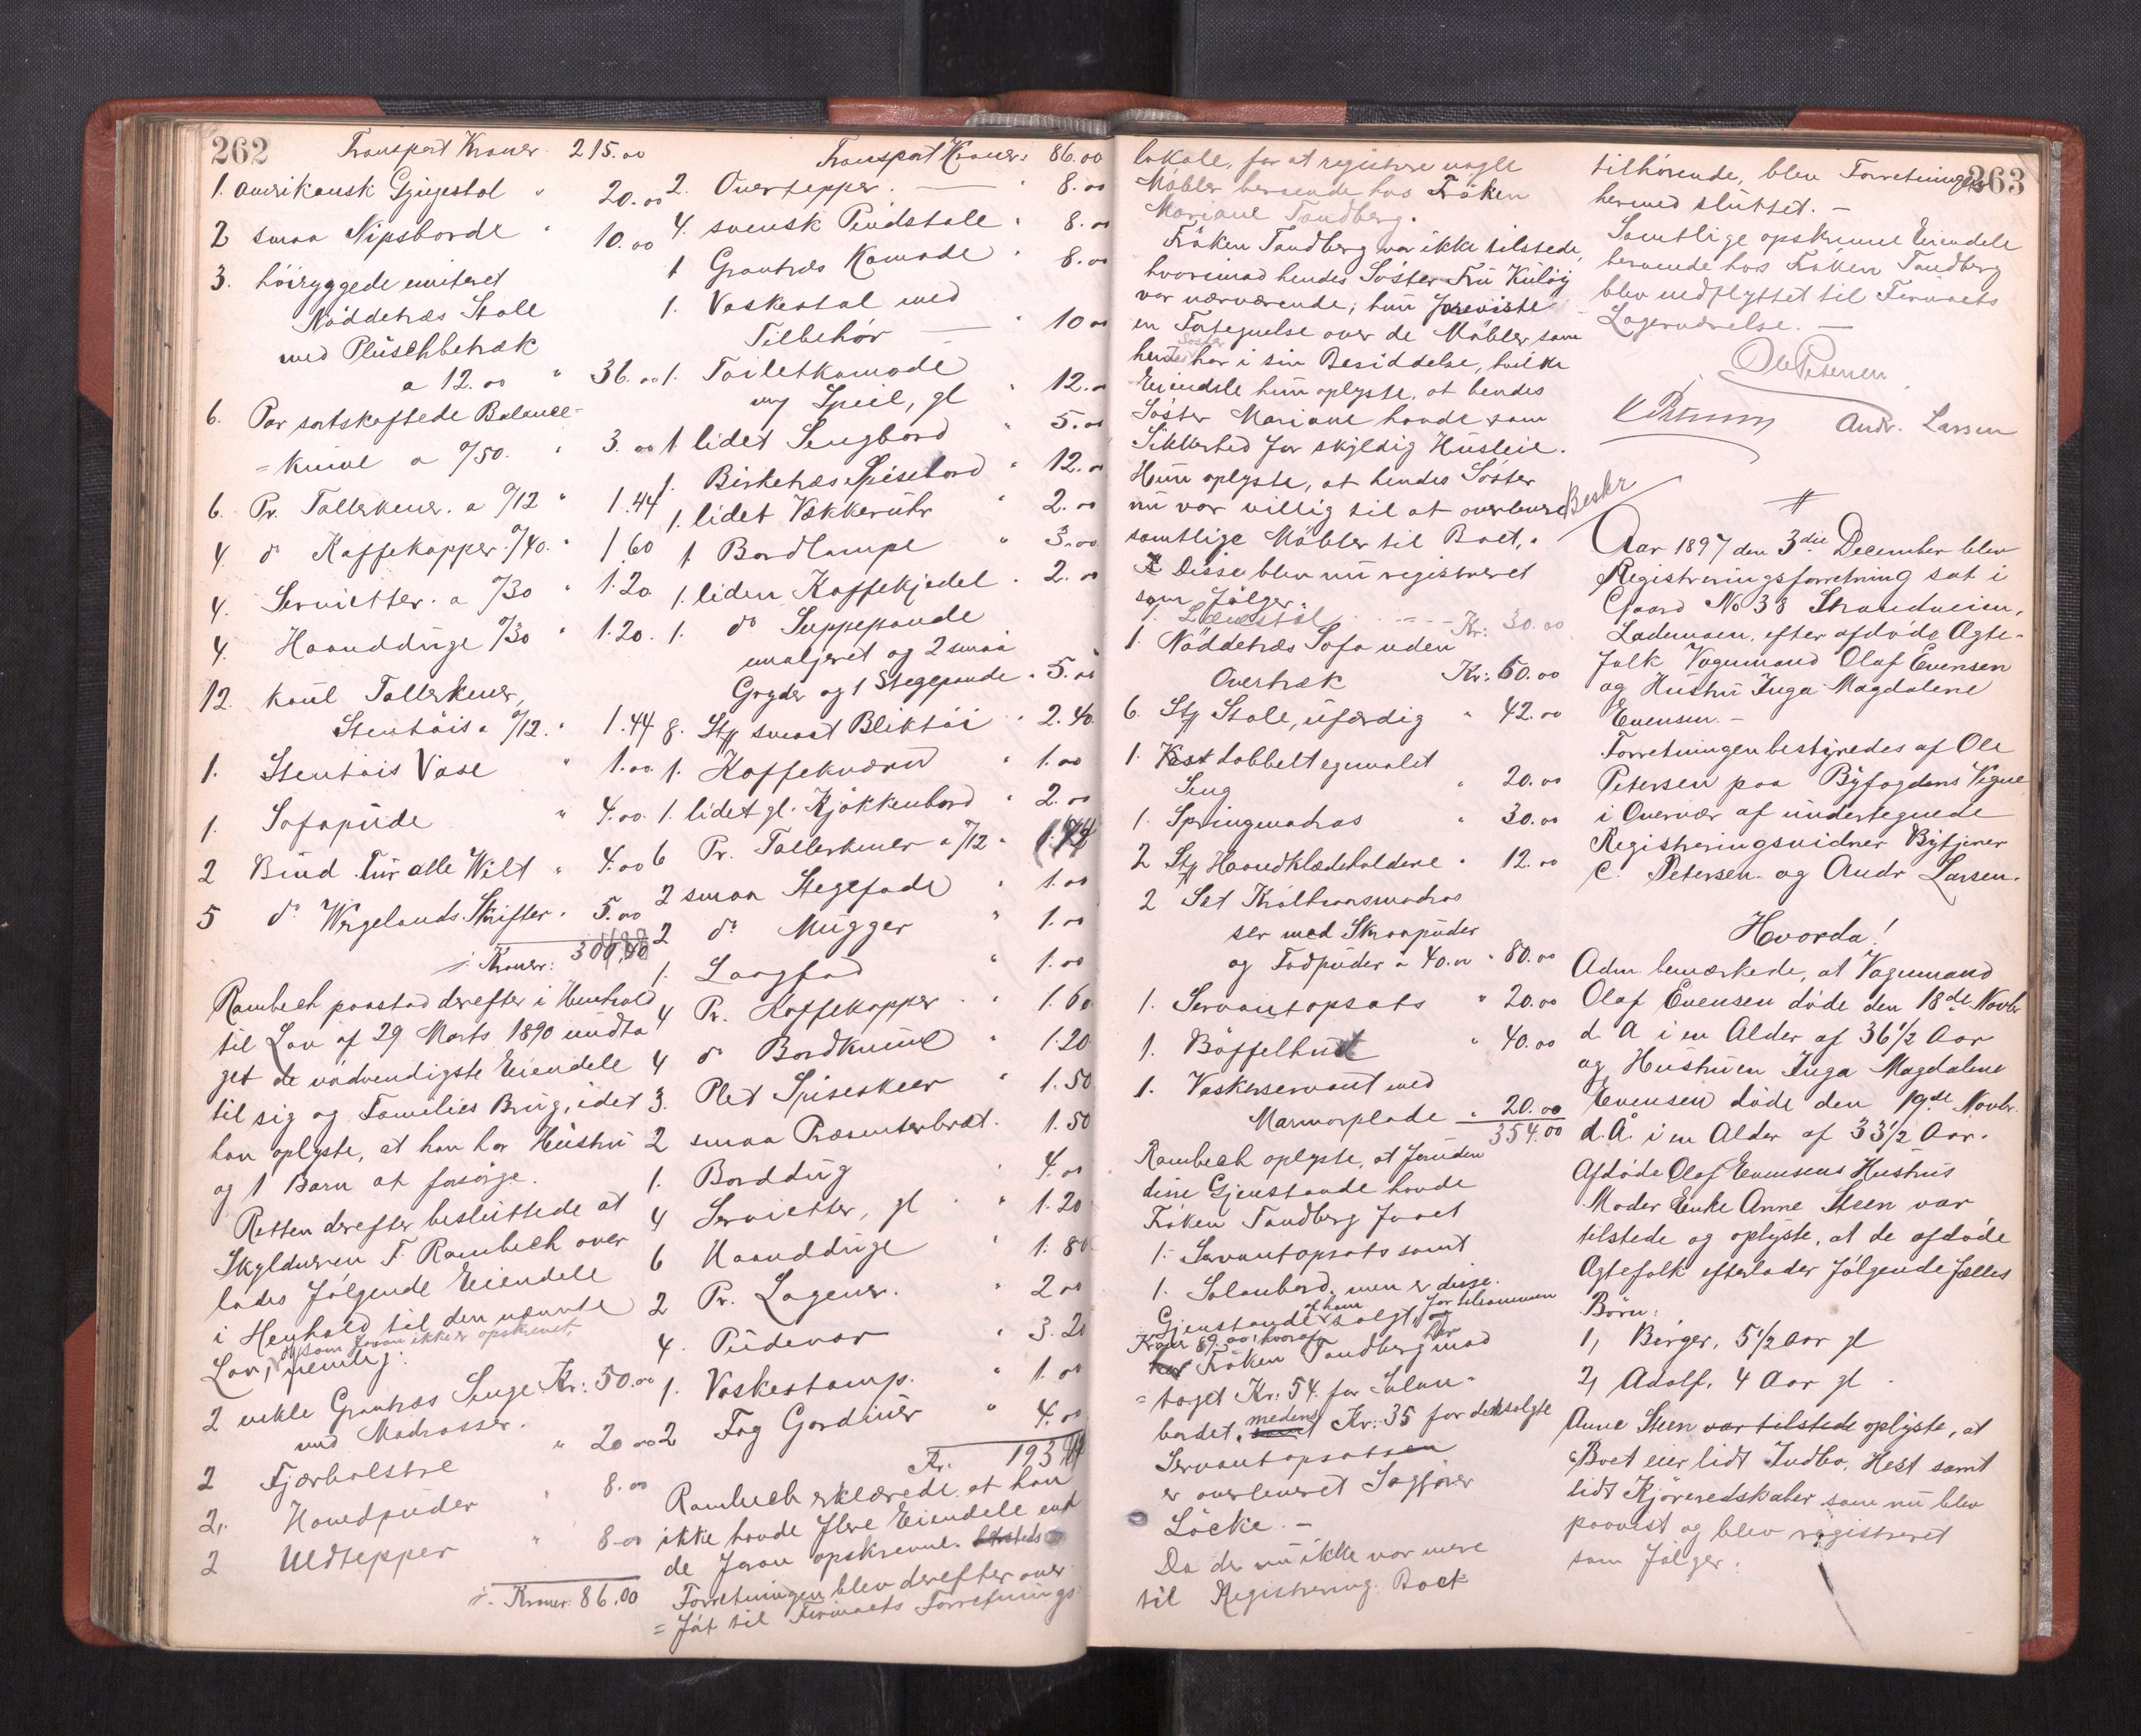 262
Transport Kroner 215.00
1. amerikansk Gyngestol " 20.00
2 smaa Nipsborde " 10.00
3. höiryggede imiteret
Nöddetræs Stole
med Plüschbetræk
a 12.00 " 36.00
6. Par sortskaftede Balance-
= knive a 0/50. " 3.00
6. Pr. Tallerkener. a 0/12 " 1.44
4 do Kaffekopper 0/40. " 1 60
4. Servietter. a 0/30 " 1.20
4. Haandduge 0/30 " 1.20.
12. hvil Tallerkener,
Stentöis a 0/12. " 1.44
1. Stentöis Vase " 1.00
1. Sofapude " 4.00
2 Bind Für alle Welt " 4.00
5 do Wergelands Skrifter. " 5.00
Kroner:
Rambech paastod derefter i Henhold
til Lov af 29 Marts 1890 undta
get de nödvendigste Eiendele
til sig og Families Brug, idet
han oplyste, at han har Hustru
og 1 Barn at forsörge.
Retten derefter besluttede at
Skyldneren F. Rambech over
lades fölgende Eiendele
i Henhold til den nævnte
som foran ikke er opskrevet,
Lov, nemlig:
2 enkle Grantræs Senge Kr: 50.00
med Madrasser.
2 Fjærbolstre " 20 00
2. Hovedpuder " 8.00
2 Uldtepper " 8.00
Kroner 86.00
Transport Kroner: 86.00
2. Overtepper. " 8.00
4. svensk Pindstole " 8.00
1 Grantræs Komode " 8.00
1. Vaskestol med
Tilbehör 10 00
1. Toiletkomode
og Speil, gl " 12.00
1 lidet Sengbord " 5.00
1. Birketræs Spisebord " 12.00
1. lidet Vækkeruhr " 2.00
1. Bordlampe " 3.00
1. liden Kaffekjedel " 2.00
1. do Suppepande
emaljeret og 2 smaa
Gryder og 1 Stegepande " 5.00
8. Stk smaat Bliktöi " 2.40
1. Kaffekværn " 1.00
1. lidet gl. Kjökkenbord " 2.00
6 Pr. Tallerkener a 0/12 "
2 smaa Stegefade " 1.00
2 do Mugger " 1.00
1. Laagfad " 1.00
4 Pr. Kaffekopper " 1.60
4 do Bordknive " 1.20
3. Plet Spiseskeer " 1.50
2 smaa Præsenterbræt. 1.50
1. Borddug 4.00
4 Servietter, gl " 1.20
6 Haandduge " 1.80
2 Pr. Lagener. " 2 00
4. Pudevar " 3.20
1. Vaskestamp. " 1.00
2 Fag Gardiner " 4.00
Kr. 193 44
Rambech erklærede, at han
ikke havde flere Eiendele end
de foran opskrevne.
Forretningen blev derefter over
= fört til Firmaets Forretnings
lokale, for at registrere nogle
Möbler beroende hos Fröken
Mariane Tandberg.
Fröken Tandberg var ikke tilstede,
hvorimod hendes Söster Fru Kulöy
var nærværende; hun foreviste
en Fortegnelse over de Möbler som
Söster
hendes har i sin Besiddelse, hvilke
Eiendele hun oplyste, at hendes
Söster Mariane havde som
Sikkerhed for skyldig Husleie.
Hun oplyste, at hendes Söster
nu var villig til at overlevere
samtlige Möbler til Boet,
Disse blev nu registreret
som fölger.
1. Lænestol Kr: 30.00
1. Nöddetræs Sofa uden
Overtræk Kr: 60.00
6. Stk Stole, ufærdig " 42.00
1. dobbelt egemalet
Seng " 20.00
1. Springmadras " 30.00
2 Stk Haandklædeholdere " 12.00
2 Set Krölhaarsmadras
ser med Skraapuder
og Fodpuder a 40.00 " 80.00
1. Servantopsats " 20.00
1. Böffelhud " 40.00
1. Vaskeservant med
Marmorplade " 20.00
354.00
Rambech oplyste, at foruden
disse Gjenstande havde
Fröken Tandberg faaet
1. Servantopsats samt
1. Salonbord, men er disse
af ham for tilsammen
Gjenstande solgt, og
Kroner 89.00, hvoraf
har
Fröken Tandberg mod
= taget Kr. 54 for Salon-
bordet, medens Kr: 35 for den solgte
Servantopsats
er overleveret Sagförer
Löcke. -
Da der nu ikke var mere
til Registrering Boet
263
tilhörende, blev Forretningen
hermed sluttet. -
Samtlige opskrevne Eiendele
beroende hos Fröken Tandberg
blev nedflyttet til Firmaets
Lagerværelse. -
Ole Petersen
C Petersen
Andr. Larsen
Beskr
Aar 1897 den 3die December blev
Registreringsforretning sat i
Gaard No 38 Strandveien,
Lademoen, efter afdöde Ægte-
folk Vognmand Olaf Evensen
og Hustru Inga Magdalene
Evensen. -
Forretningen bestyredes af Ole
Petersen paa Byfogdens Vegne
i Overvær af undertegnede
Registreringsvidner Bytjener
C. Petersen og Andr Larsen.
Hvorda!
Adm bemærkede, at Vognmand
Olaf Evensen döde den 18de Novbr
d. A i en Alder af 36 1/2 Aar
og Hustruen Inga Magdalene
Evensen döde den 19de Novbr.
d. A. i en Alder af 33 1/2 Aar.
Afdöde Olaf Evensens Hustrus
Moder Enke Anne Steen var
tilstede og oplyste, at de afdöde
Ægtefolk efterlader fölgende fælles
Börn:
1, Birger, 5 1/2 Aar gl
2, Adolf, 4 Aar gl.
Anne Steen var tilstede oplyste, at
Boet eier lidt Indbo, Hest samt
lidt Kjöreredskaber som nu blev
paavist og blev registreret
som fölger: